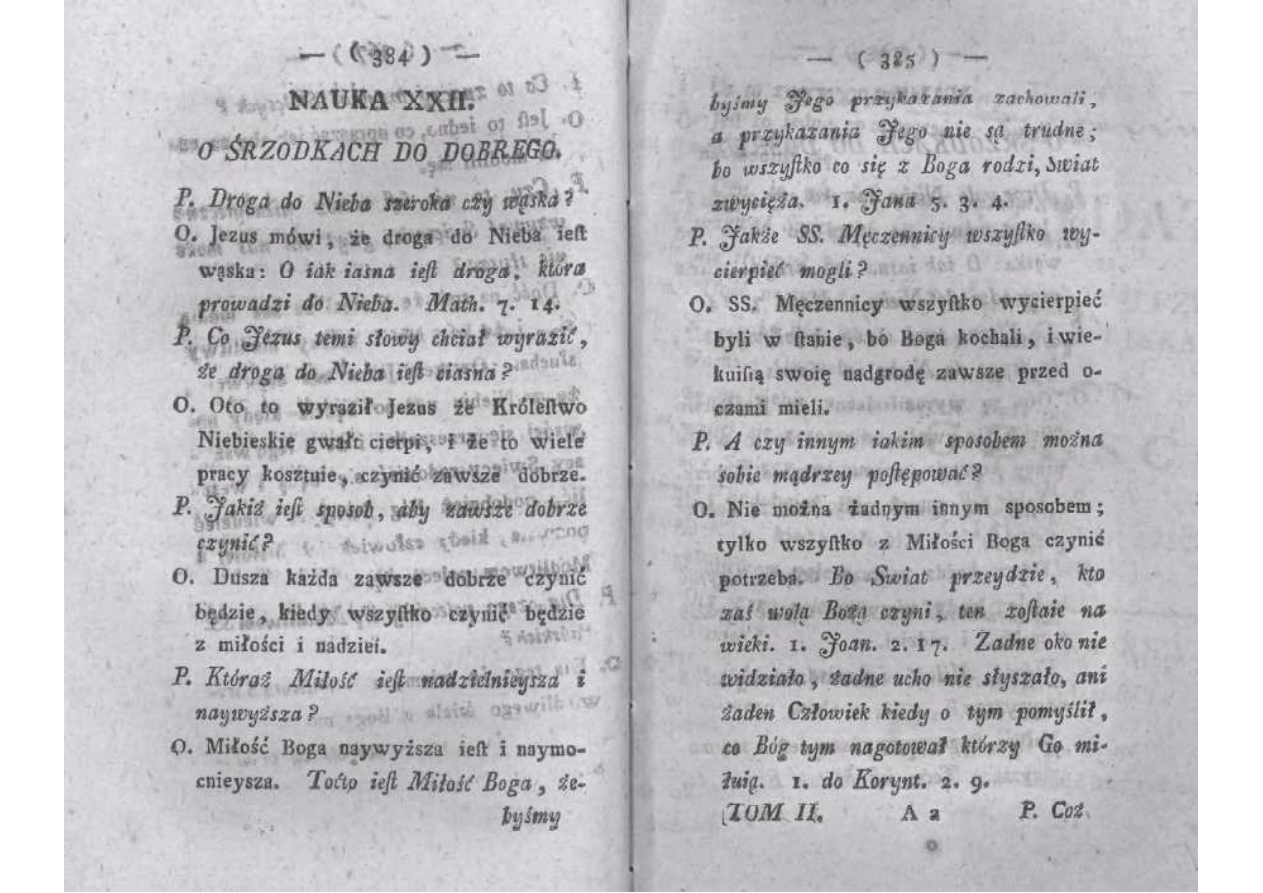 — ( 384 ) —
NAUKA XXII.
O ŚRZODKACH DO DOBREGO.
P. Droga do Nieba szeroka czy wąska?
O. Jezus mówi, że droga do Nieba ieſt
wąska: O iak iasna ieſt droga, która
prowadzi do Nieba. Math. 7. 14.
P. Co Jezus temi słowy chciał wyrazić,
że droga do Nieba ieſt ciasna?
O. Oto to wyraził Jezus że Króleſtwo
Niebieskie gwałt cierpi, i że to wiele
pracy kosztuie, czynić zawsze dobrze.
P. Jakiż ieſt sposob, aby zawsze dobrze
czynić?
O. Dusza każda zawsze dobrze czynić
będzie, kiedy wszyſtko czynić będzie
z miłości i nadziei.
P. Któraż Miłość ieſt nadzielnieysza i
naywyższa?
O. Miłość Boga naywyższa ieſt i naymo-
cnieysza. Toćto ieſt Miłość Boga, że-
byśmy
— ( 385 ) —
byśmy Jego przykazania zachowali,
a przykazania Jego nie są trudne;
bo wszyſtko co się z Boga rodzi, Swiat
zwycięża. 1. Jana 5. 3. 4.
P. Jakże SS. Męczennicy wszyſtko wy-
cierpieć mogli?
O. SS. Męczennicy wszyſtko wycierpieć
byli w ſtanie, bo Boga kochali, i wie-
kuiſtą swoię nadgrodę zawsze przed o-
czami mieli.
P. A czy innym iakim sposobem można
sobie mądrzey poſtępować?
O. Nie można żadnym innym sposobem;
tylko wszyſtko z Miłości Boga czynić
potrzeba. Bo Swiat przeydzie, kto
zaś wolą Bożą czyni, ten zoſtaie na
wieki. 1. Joan. 2. 17. Zadne oko nie
widziało, żadne ucho nie słyszało, ani
żaden Człowiek kiedy o tym pomyślił,
co Bóg tym nagotował którzy Go mi-
łuią. 1. do Korynt. 2. 9.
TOM II. A a P. Coż